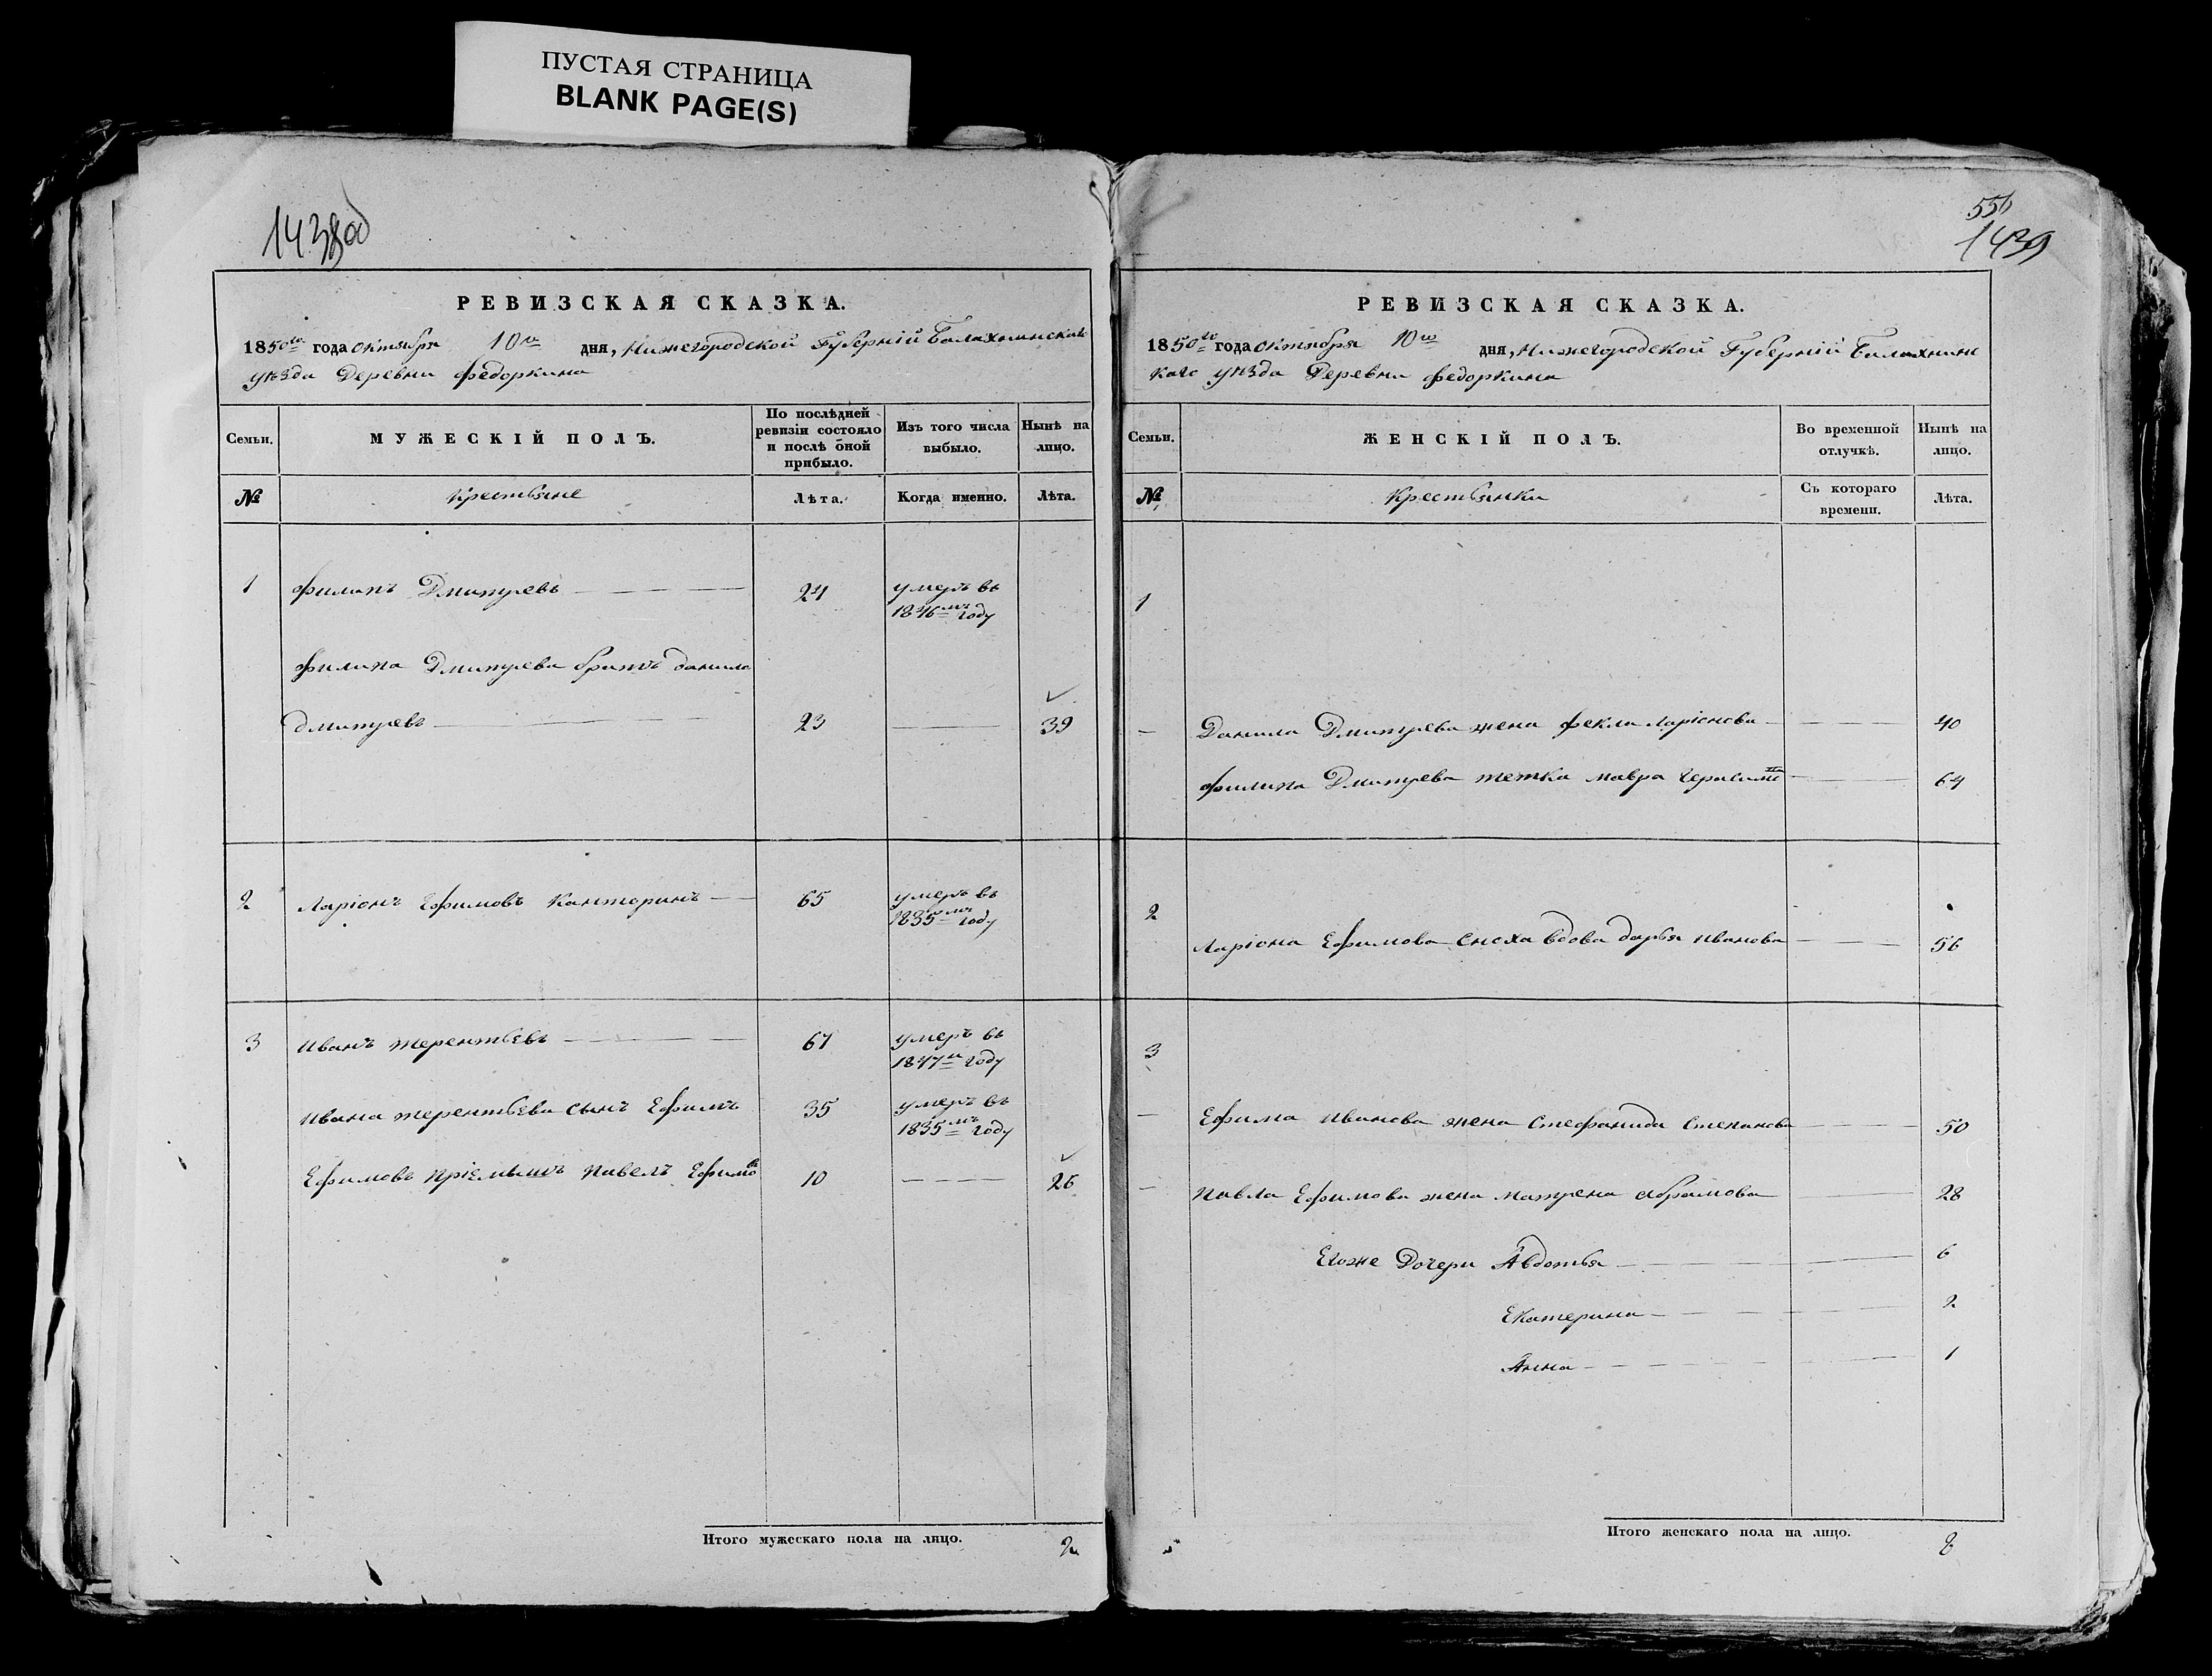 ПУСТАЯ СТРАНИЦА
BLANK PAGE(S)
1438об
РЕВИЗСКАЯ СКАЗКА.
1850го года октября 10го дня, Нижегородской Губерніи Балахнинскаго
уѣзда Деревни Федоркина
Семьи. МУЖЕСКІЙ ПОЛЪ. По послѣдней ревизіи состояло и послѣ оной прибыло. Изъ того числа выбыло. Нынѣ на лицо.
№ Крестьяне Лѣта. Когда именно. Лѣта.
1 Филипъ Дмитріевъ 24 умеръ въ
1846мъ году
Филипа Дмитріева братъ Данила
Дмитріевъ 23 39
2 Ларіонъ Ефимовъ Канторинъ 65 умеръ въ
1835мъ году
3 Иванъ Терентьевъ 67 умеръ въ
1847м году
Ивана Терентьева сынъ Ефимъ 35 умеръ въ
1835мъ году
Ефимовъ пріемышъ Павелъ Ефимовъ 10 26
Итого мужескаго пола на лицо. 2
556
1439
РЕВИЗСКАЯ СКАЗКА.
1850го года октября 10го дня, Нижегородской Губерніи Балахнинс
каго уѣзда Деревни Федоркина
Семьи. ЖЕНСКІЙ ПОЛЪ. Во временной отлучкѣ. Нынѣ на лицо.
№ Крестьянки Съ котораго времени. Лѣта.
1
Данила Дмитріева жена Фекла Ларіонова 40
Филипа Дмитріева тетка Мавра 64
2
Ларіона Ефимова сноха вдова Дарья Иванова 56
3
Ефима Иванова жена Стефанида Степанова 50
Павла Ефимова жена Матрена Абрамова 28
Егоже Дочери Авдотья 6
Екатерина 2
Анна 1
Итого женскаго пола на лицо. 8